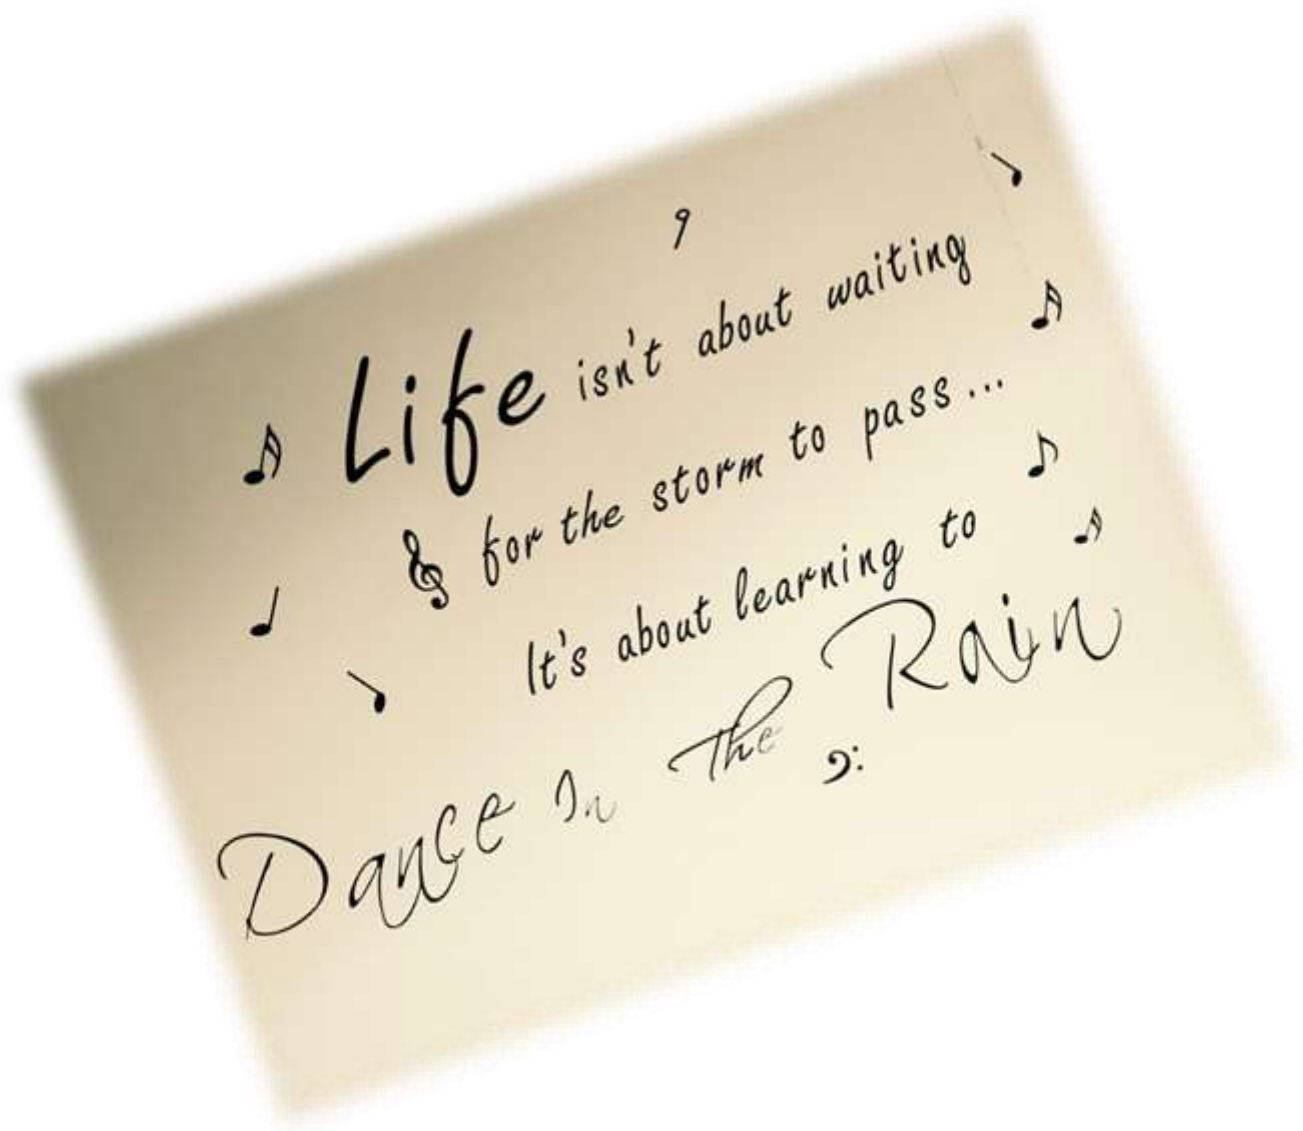 Life isn't about waiting
for the storm to pass...
It's about learning to
Dance In The Rain